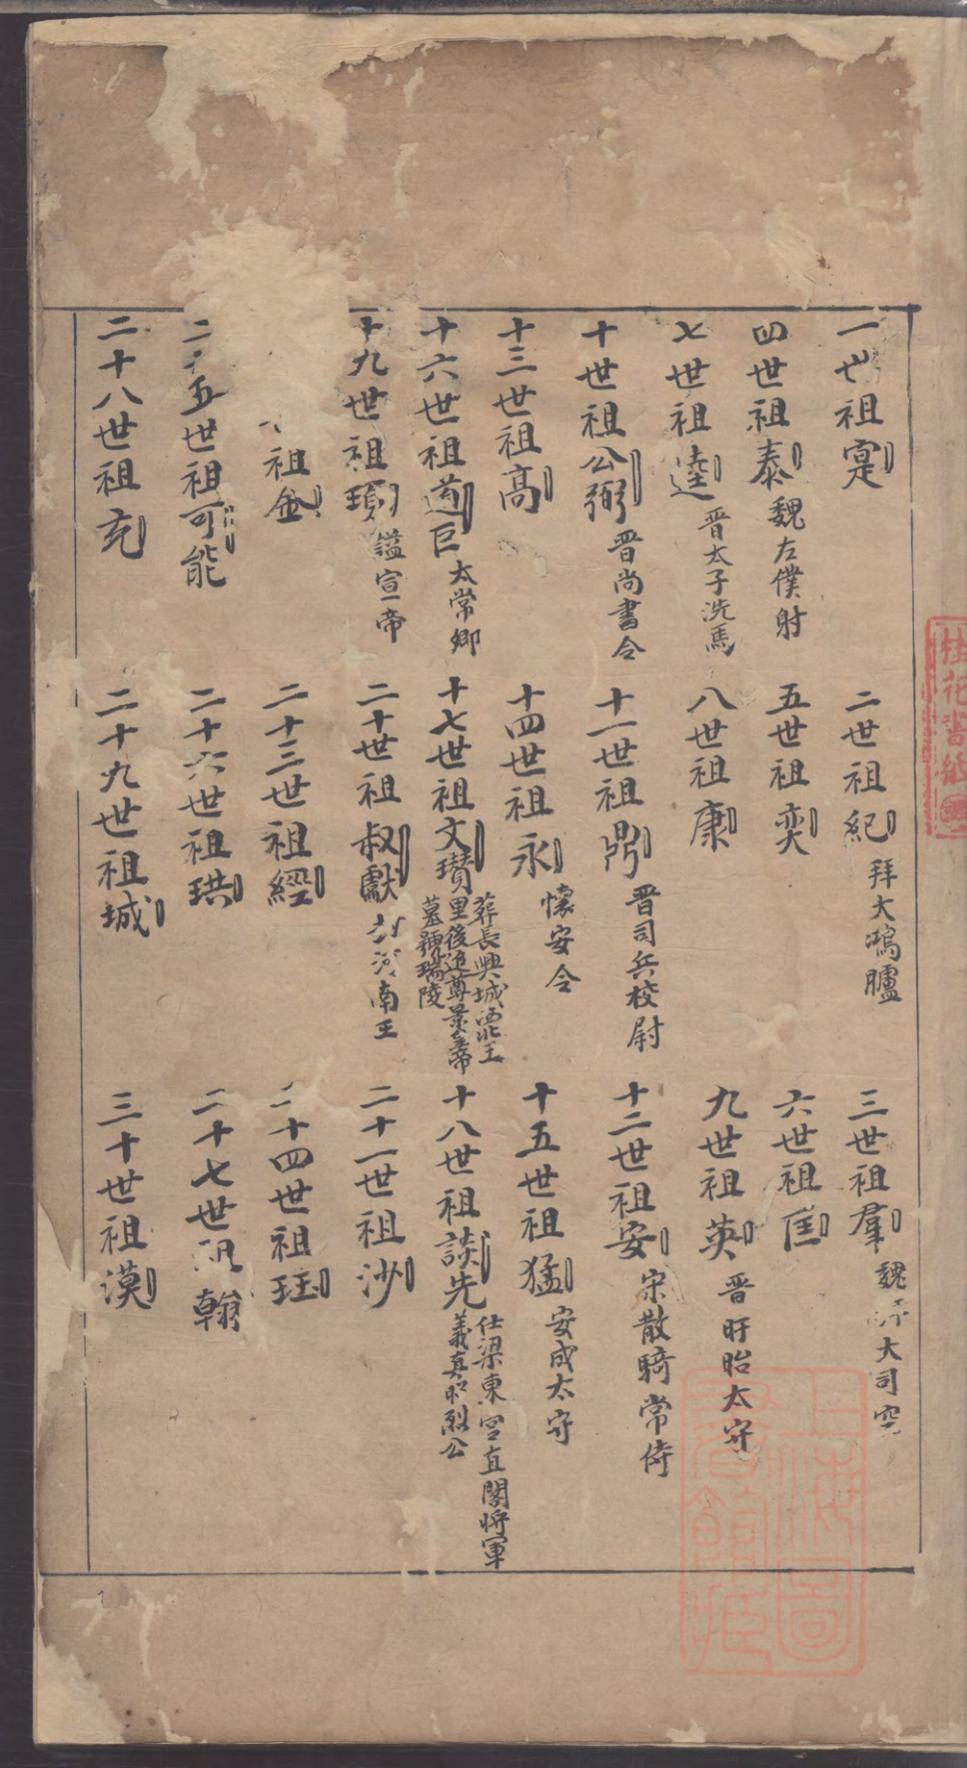 一世祖寔
二世祖紀 拜大鴻臚
三世祖羣 魏 大司空
四世祖泰 魏左僕射
五世祖奕
六世祖匡
七世祖逵 晋太子洗馬
八世祖康
九世祖英 晋盱眙太守
十世祖公弼 晋尚書令
十一世祖鼎 晋司兵校尉
十二世祖安 宋散騎常侍
十三世祖高
十四世祖永 懷安令
十五世祖猛 安成太守
十六世祖道巨 太常卿
十七世祖文瓚 葬長興城西北王
里後追尊景皇帝
墓號瑞陵
十八世祖談先 仕梁東宮直閣將軍
義真昭烈公
十九世祖 謚宣帝
二十世祖叔獻 封河南王
二十一世祖沙
祖金
二十三世祖經
二十四世祖珏
二十五世祖可能
二十六世祖珙
二十七世祖翰
二十八世祖充
二十九世祖城
三十世祖漠
上海圖
書館藏